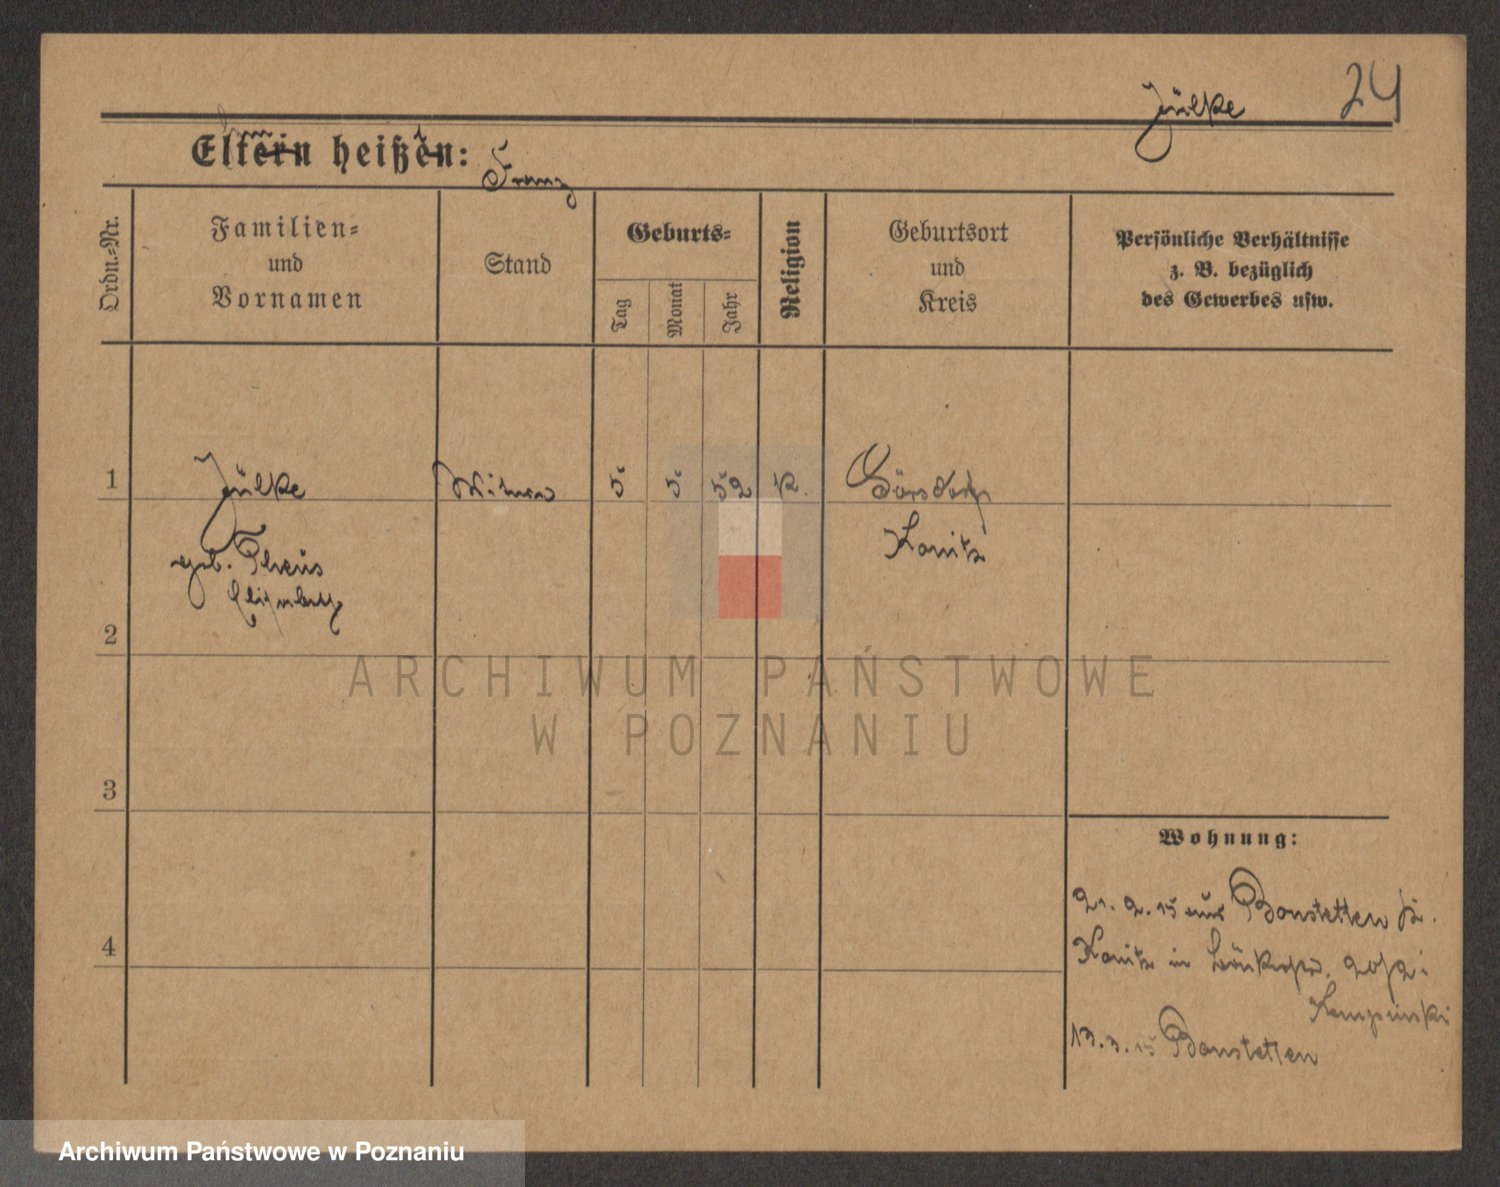 Jülke 24
Eltern heißen:
Franz
Ordn.=Nr.
Familien=
und
Vornamen
Stand
Geburts=
Tag
Monat
Jahr
Religion
Geburtsort
und
Kreis
Persönliche Verhältnisse
z. B. bezüglich
des Gewerbes usw.
1 Jülke Witwe 5 5 52 k. Görsdorf
Konitz
geb.
Elisabeth
2
3
4
Wohnung:
21. 2. 15 aus Bonstetten b.
Konitz in 20/2
13. 3. 15 Bonstetten
ARCHIWUM PAŃSTWOWE
W POZNANIU
Archiwum Państwowe w Poznaniu